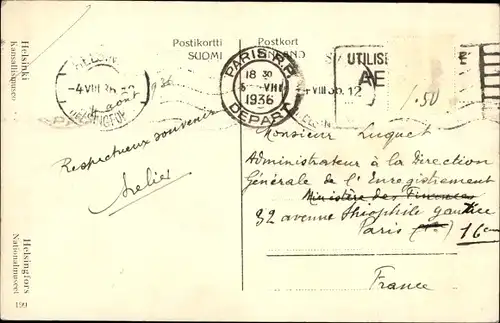 Helsinki
Kansallismuseo
Helsingfors
Nationalmuseet
199
Postikortti
SUOMI
Postkort
-4 VIII 36.
HELSINGFORS
PARIS R.P.
18 30
VIII
1936
DEPART
VIII 36.12
UTILISE
AE
1.50
4 août
Respectueux souvenir
Monsieur Luquet
Administrateur à la Direction
Générale de l'Enregistrement
Ministère des Finances
32 avenue Théophile gautier
Paris
16em
France